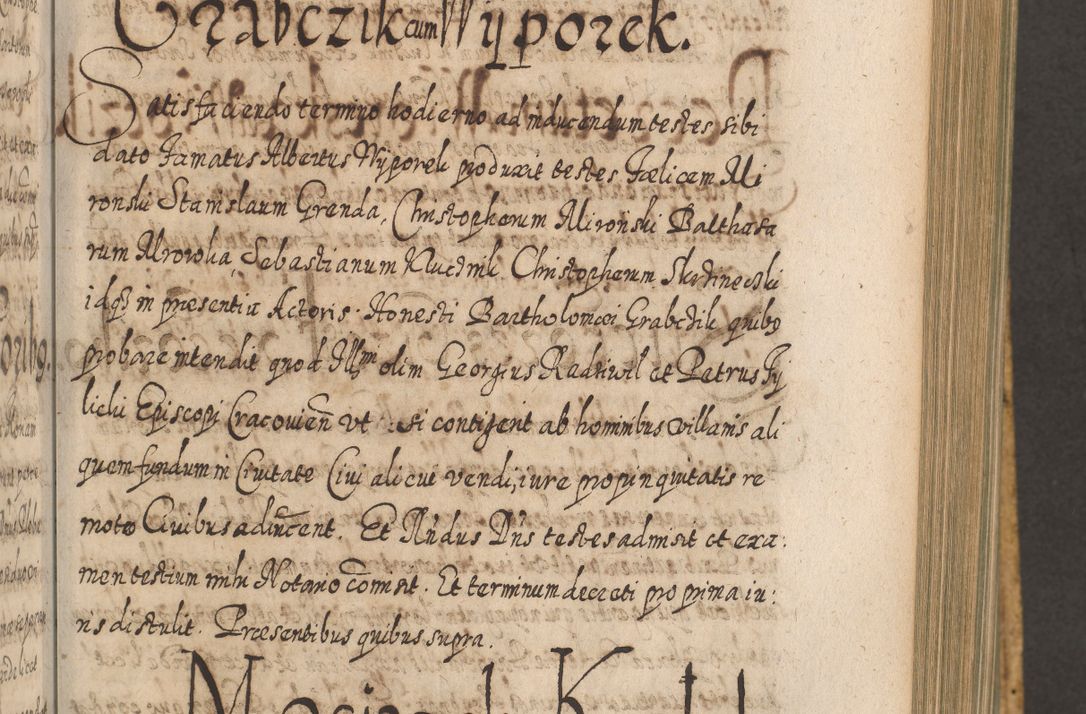 Grabczik cum Wyporek.
Satisfaciendo termino hodierno ad inducendum testes sibi
dato Famatus Albertus Wyporek produxit testes Fælicem Mi
ronski Stanislaum Grenda, Christopherum Mironski Balthasa
rum Mrowka, Sebastianum Klucznik Christopherum
idq3 in presentia Actoris Honesti Bartholomæi Grabczik quibo
probare intendit quod Illm olim Georgius Radziwil et Petrus Ty
licki Episcopi Cracovien̄ ut si contigerit ab hominibus villanis ali
quem fundum in Civitate Civi alicui vendi, iure propinquitatis re
moto Civibus adiucent. Et R̃ndus Dn̄s testes admisit et exa:
men testium mihi Notario com̄sit. Et terminum decreti pro prima iu:
ris distulit. Præsentibus quibus supra.